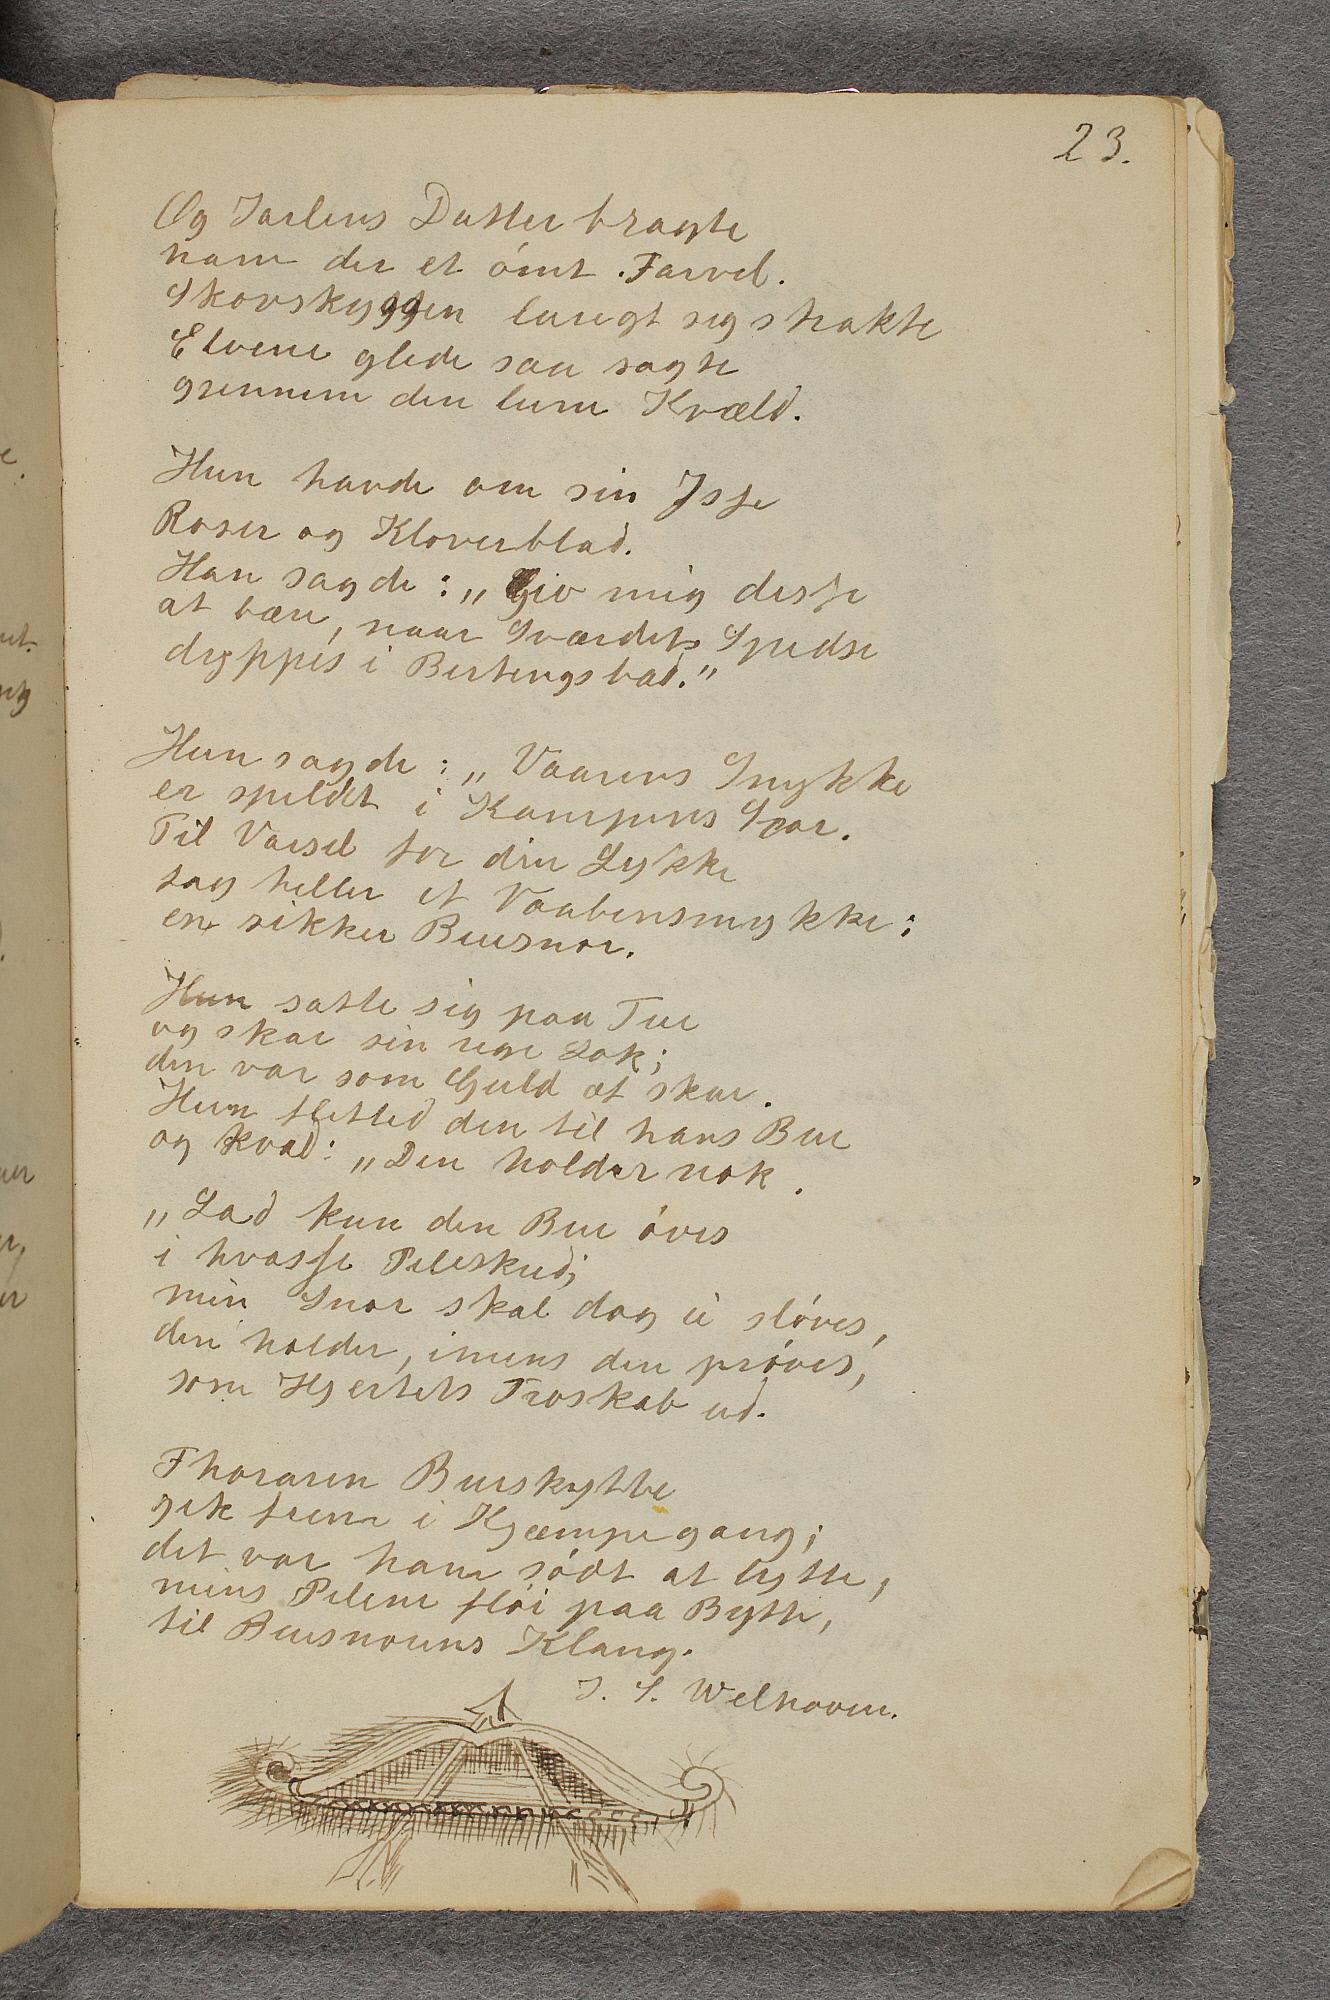 23.
Og Jarlens Datter bragte
ham der et ömt Farvel.
Skovskyggen luugt sig strakte
Elvene glede saa sagte
gjennem den lune Kvæld.
Hun havde om sin Isse
Roser og Kloverblad.
Han sagde: „Giv mig disse
at bære, naar Sværdets Spidse
dyppes i Bertingsbad."
Hun sagde: „Vaarens Smykke
er spildt i Kampens Spor.
Til Varsel for din Lykke
tag heller et Vaabensmykke:
en sikker Buesnor.
Hun satte sig paa Tue
og skar sin rige Lok;
den var som Guld at skue.
Hun fletted den til hans Bue
og kvad: „Den holder nok.
„Lad kun den Bue öves
i hvasse Pileskud;
min Snor skal dog ei slöves,
den holder, imens den pröves,
som Hjertets Troskab ud.
Thoraren Bueskytte
gik frem i Kjæmpegang;
det var ham södt at lytte,
mens Pilene flöi paa Bytte,
til Buesnorens Klang.
J. S. Welhaven.